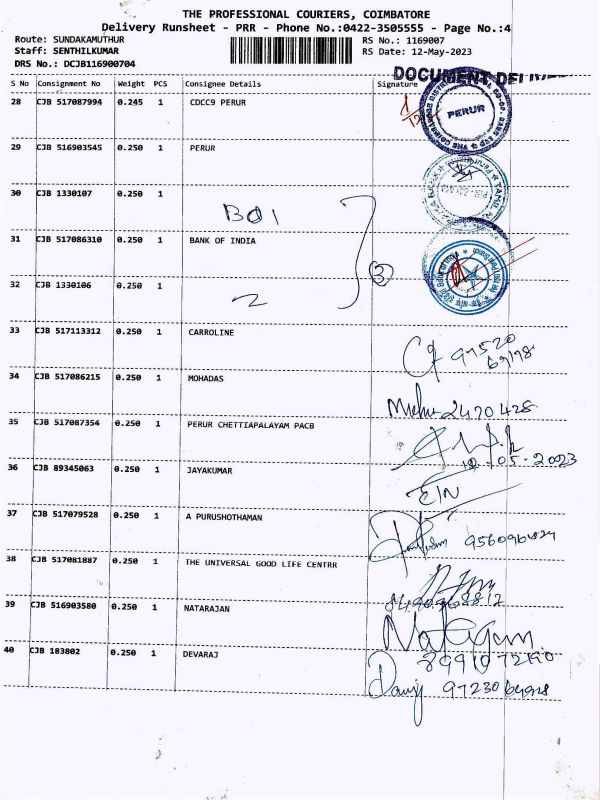 THE PROFESSIONAL COURIERS, COIMBATORE
Delivery Runsheet - PRR - Phone No.:0422-3505555 - Page No.:4
Route: SUNDAKAMUTHUR RS No.: 1169007
Staff: SENTHILKUMAR RS Date: 12-May-2023
DRS No.: DCJB116900704
DOCUMENT
S No Consignment No Weight PCS Consignee Details Signature
28 CJB 517087994 0.245 1 CDCC9 PERUR
PERUR
29 CJB 516903545 0.250 1 PERUR
30 CJB 1330107 0.250 1
BOI
31 CJB 517086310 0.250 1 BANK OF INDIA
3
32 CJB 1330106 0.250 1
2
33 CJB 517113312 0.250 1 CARROLINE
97520
34 CJB 517086215 0.250 1 MOHADAS
2420428
35 CJB 517087354 0.250 1 PERUR CHETTIAPALAYAM PACB
12-05-2023
36 CJB 89345063 0.250 1 JAYAKUMAR
37 CJB 517079528 0.250 1 A PURUSHOTHAMAN
38 CJB 517081887 0.250 1 THE UNIVERSAL GOOD LIFE CENTRR
39 CJB 516903580 0.250 1 NATARAJAN
40 CJB 183802 0.250 1 DEVARAJ